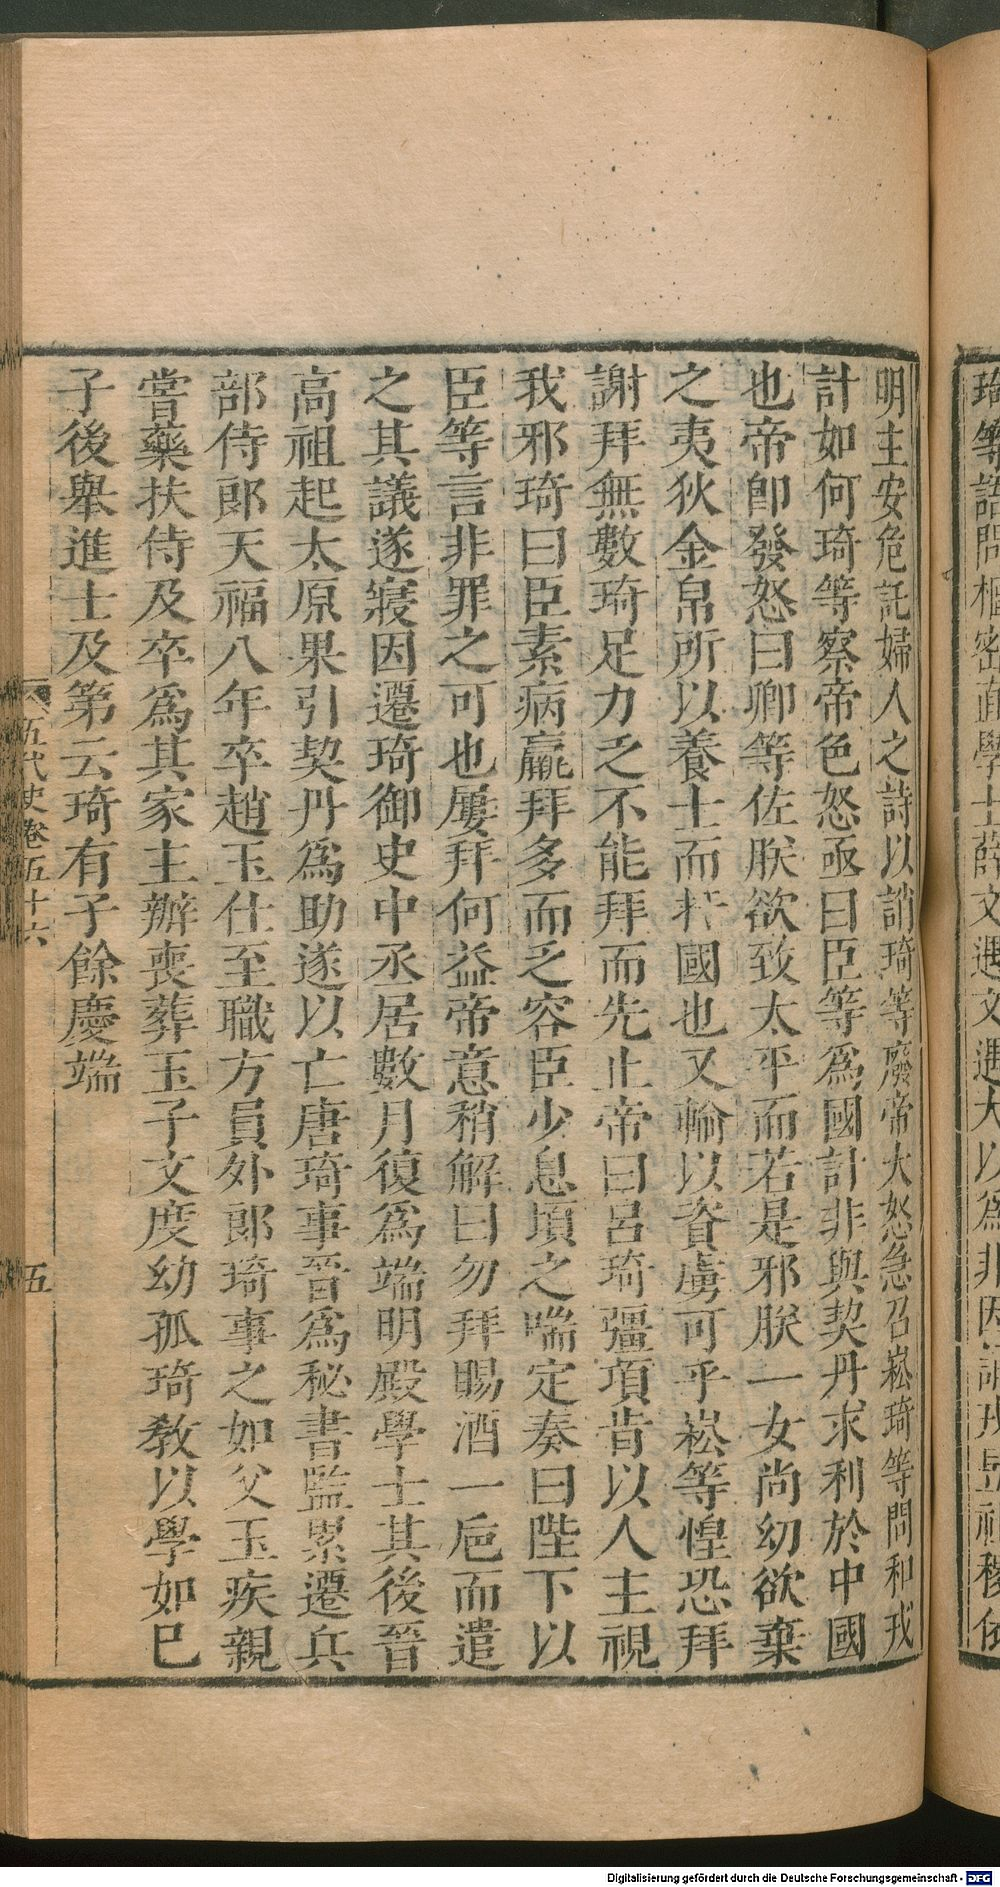 明主安危託婦人之詩以誚琦等廢帝大怒急召崧琦等問和戎
計如何琦等察帝色怒亟曰臣等爲國計非與契丹求利於中國
也帝卽發怒曰卿等佐朕欲致太平而若是邪朕一女尚幼欲棄
之夷狄金帛所以養士而扞國也又輸以資虜可乎崧等惶恐拜
謝拜無數琦足力乏不能拜而先止帝曰呂琦彊項肯以人主視
我邪琦曰臣素病羸拜多而乏容臣少息頃之喘定奏曰陛下以
臣等言非罪之可也屢拜何益帝意稍解曰勿拜賜酒一巵而遣
之其議遂寢因遷琦御史中丞居數月復爲端明殿學士其後晉
高祖起太原果引契丹爲助遂以亡唐琦事晉爲秘書監累遷兵
部侍郎天福八年卒趙玉仕至職方員外郎琦事之如父玉疾親
嘗藥扶侍及卒爲其家主辦喪葬玉子文度幼孤琦教以學如已
子後舉進士及第云琦有子餘慶端
五代史卷五十六
五
Digitalisierung gefördert durch die Deutsche Forschungsgemeinschaft - DFG